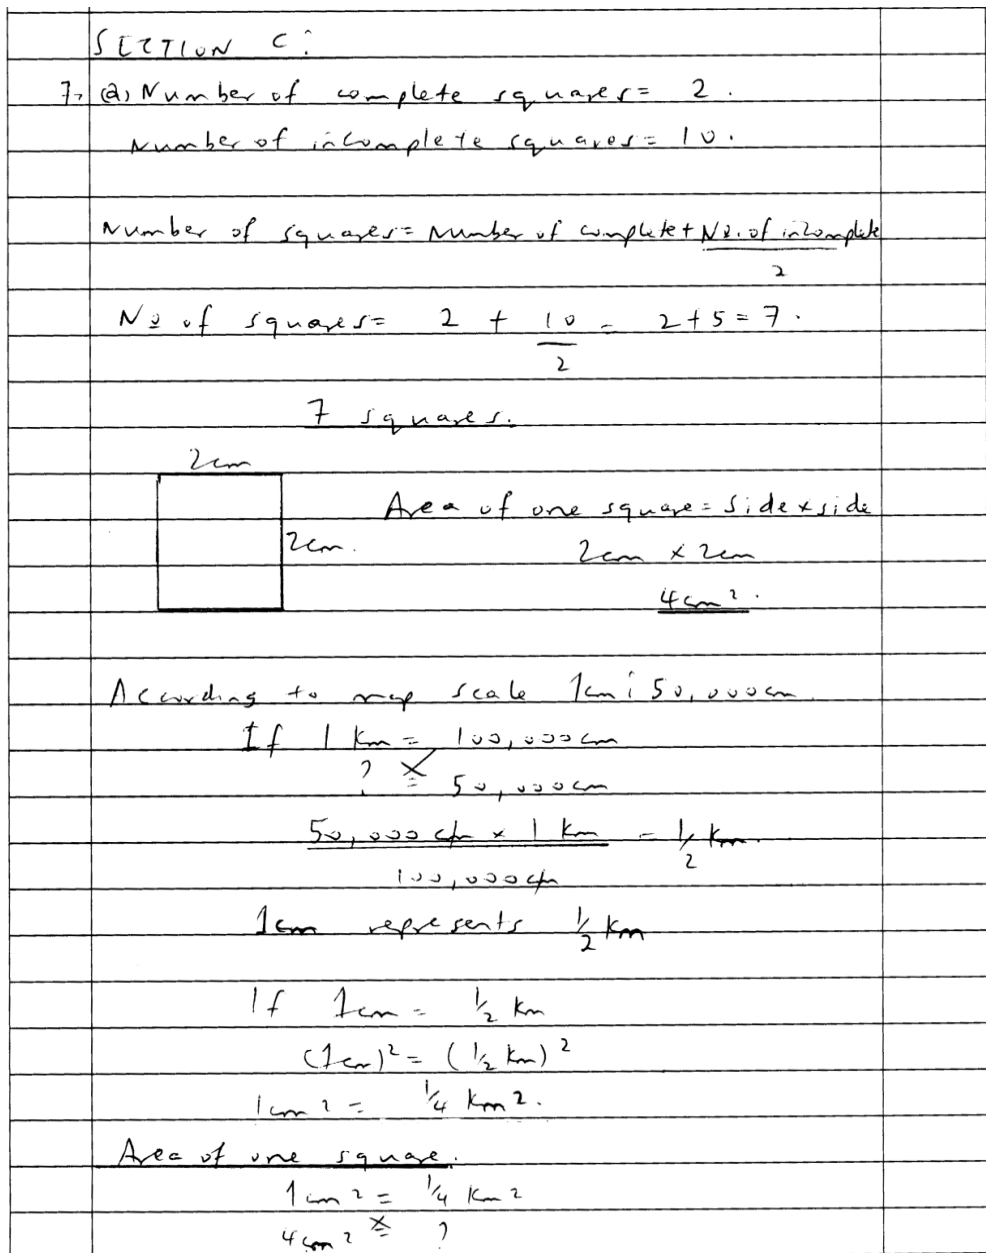 SECTION C:
7. (a) Number of complete squares = 2.
Number of incomplete squares = 10.
Number of squares = Number of complete + No. of incomplete
2
No of squares = 2 + 10 = 2+5 = 7.
2
7 squares.
2cm
Area of one square = side x side
2cm.
2cm x 2cm
4cm².
According to map scale 1cm : 50,000cm.
If 1 km = 100,000cm
? = 50,000cm
50,000 cm x 1 km = 1/2 km.
100,000cm
1cm represents 1/2 km
If 1cm = 1/2 km
(1cm)² = (1/2 km)²
1cm² = 1/4 km².
Area of one square.
1cm² = 1/4 km²
4cm² = ?